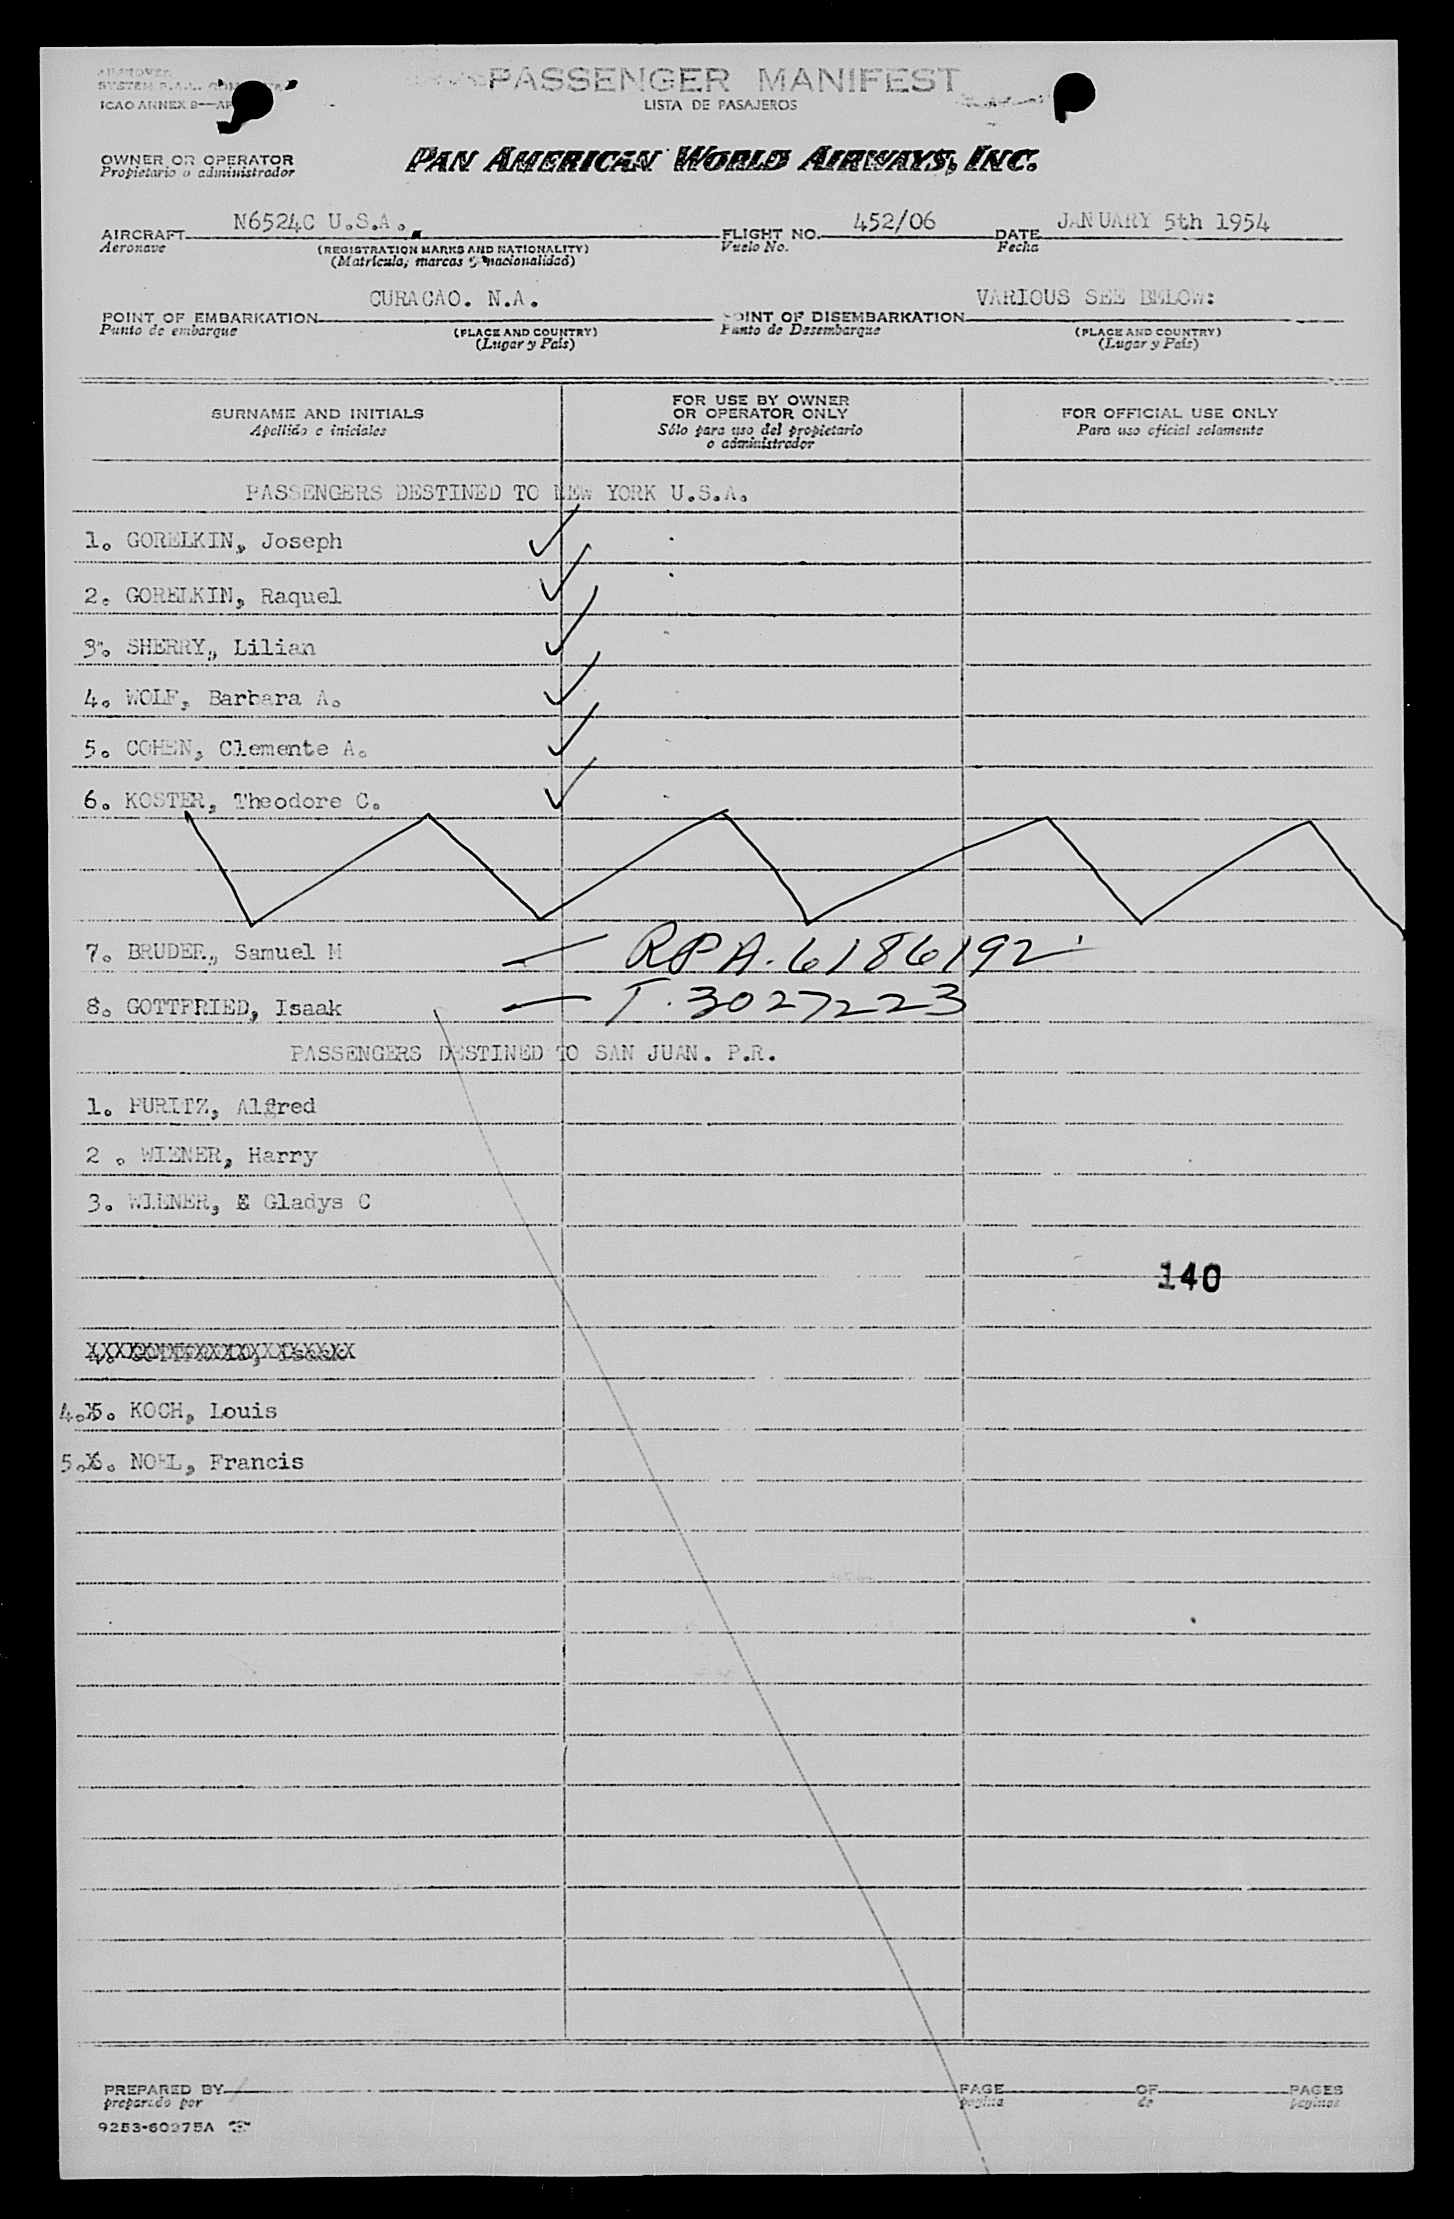 PASSENGER MANIFEST
LISTA DE PASAJEROS
ICAO ANNEX 9—AP
OWNER OR OPERATOR
Propietario o administrador
PAN AMERICAN WORLD AIRWAYS, INC.
AIRCRAFT N6524C U.S.A. FLIGHT NO. 452/06 DATE JANUARY 5th 1954
Aeronave (REGISTRATION MARKS AND NATIONALITY) Vuelo No. Fecha
(Matrícula, marcas y nacionalidad)
CURACAO. N.A. VARIOUS SEE BELOW:
POINT OF EMBARKATION POINT OF DISEMBARKATION
Punto de embarque (PLACE AND COUNTRY) Punto de Desembarque (PLACE AND COUNTRY)
(Lugar y País) (Lugar y País)
SURNAME AND INITIALS
Apellido e iniciales
FOR USE BY OWNER
OR OPERATOR ONLY
Sólo para uso del propietario
o administrador
FOR OFFICIAL USE ONLY
Para uso oficial solamente
PASSENGERS DESTINED TO NEW YORK U.S.A.
1. GORELKIN, Joseph
2. GORELKIN, Raquel
3. SHERRY, Lilian
4. WOLF, Barbara A.
5. COHEN, Clemente A.
6. KOSTER, Theodore C.
7. BRUDER, Samuel M — RPA. 6186192
8. GOTTFRIED, Isaak — T. 3027223
PASSENGERS DESTINED TO SAN JUAN. P.R.
1. PURITZ, Alfred
2 . WIENER, Harry
3. WIENER, E Gladys C
140
4. 5. KOCH, Louis
5. 6. NOEL, Francis
PREPARED BY PAGE OF PAGES
preparado por página de páginas
9253-60275A